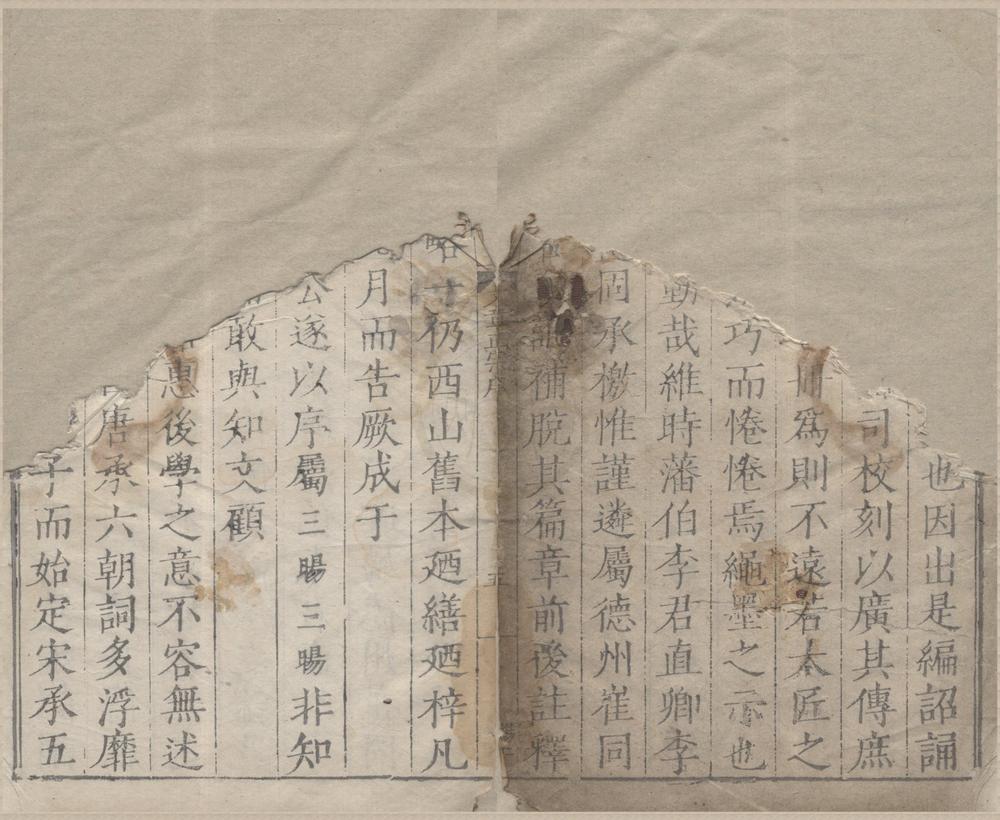 也因出是編詔誦
司校刻以廣其傳庶
爲則不遠若大匠之
巧而惓惓焉繩墨之示也
哉維時藩伯李君直卿李
同承檄惟謹遴屬德州崔同
補脫其篇章前後註釋
五
略寸仍西山舊本廼繕廼梓凡
月而告厥成于
公遂以序屬三暘三暘非知
敢與知文顧
惠後學之意不容無述
唐承六朝詞多浮靡
子而始定宋承五